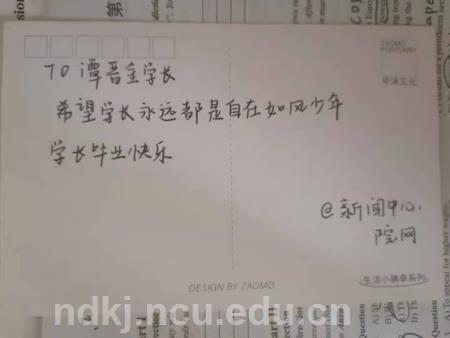 ZAOMO
POSTCARD
早沫文化
TO 谭晋全学长
希望学长永远都是自在如风少年
学长毕业快乐
@新闻中心.
院网
DESIGN BY ZAOMO
生活小确幸系列
ndkj.ncu.edu.cn
Question